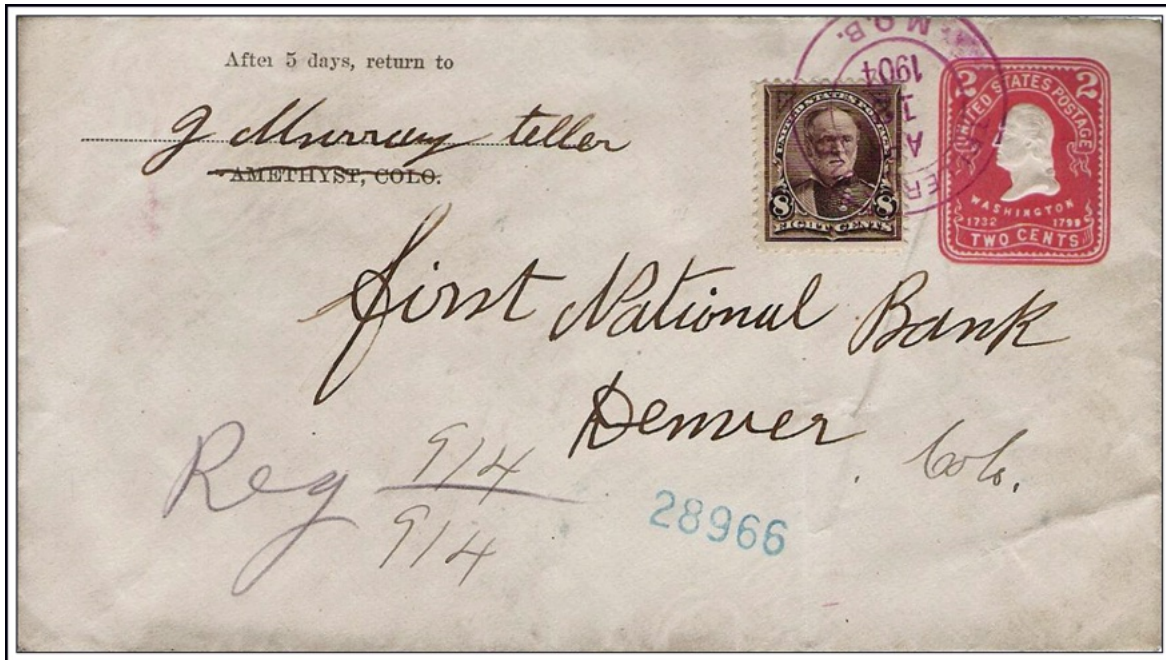 After 5 days, return to
J Murray teller
AMETHYST, COLO.
M.O.B.
1904
UNITED STATES POSTAGE
8 8
EIGHT CENTS
2 2
UNITED STATES POSTAGE
WASHINGTON
1732 1799
TWO CENTS
First National Bank
Denver
Colo.
Reg 914
914
28966